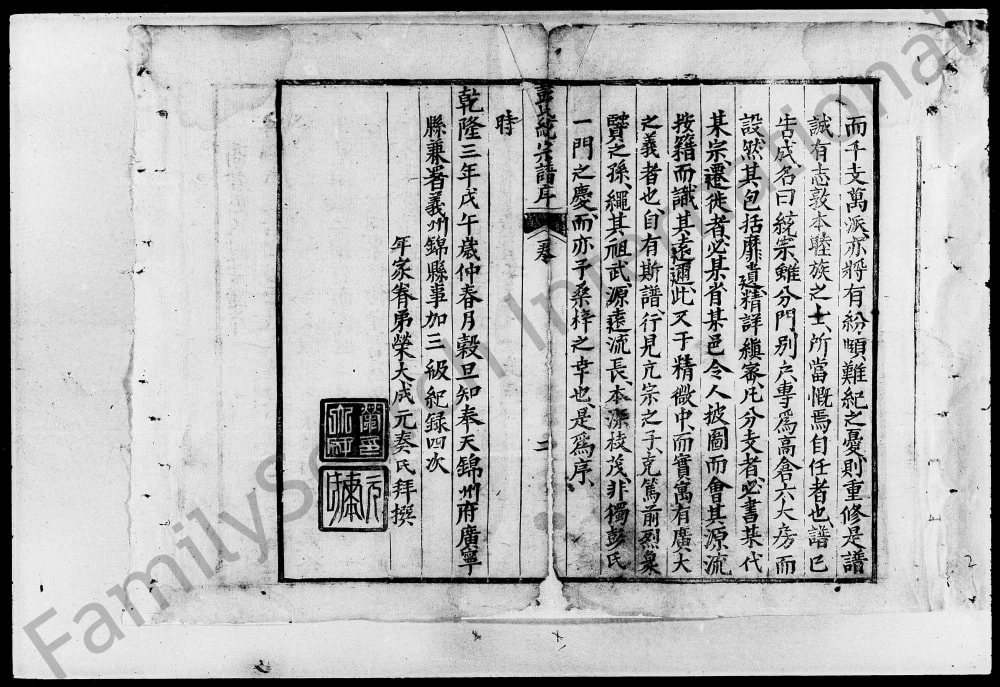 而千支萬派亦將有紛䫫難紀之憂則重修是譜
誠有志敦本睦族之士所當慨焉自任者也譜已
告成名曰統宗雖分門別户專爲高倉六大房而
設然其包括靡遺精詳縝審凡分支者必書某代
某宗遷徙者必某省某邑令人披圖而會其源流
按籍而識其遠邇此又于精微中而實寓有廣大
之義者也自有斯譜行見亢宗之子克篤前烈象
賢之孫繩其祖武源遠流長本深枝茂非獨彭氏
一門之慶而亦予桑梓之幸也是爲序
時
乾隆三年戊午歲仲春月穀旦知奉天錦州府廣寧
縣兼署義州錦縣事加三級紀録四次
年家眷弟榮大成元奏氏拜撰
彭氏統宗譜序
卷
二
FamilySearch International
2